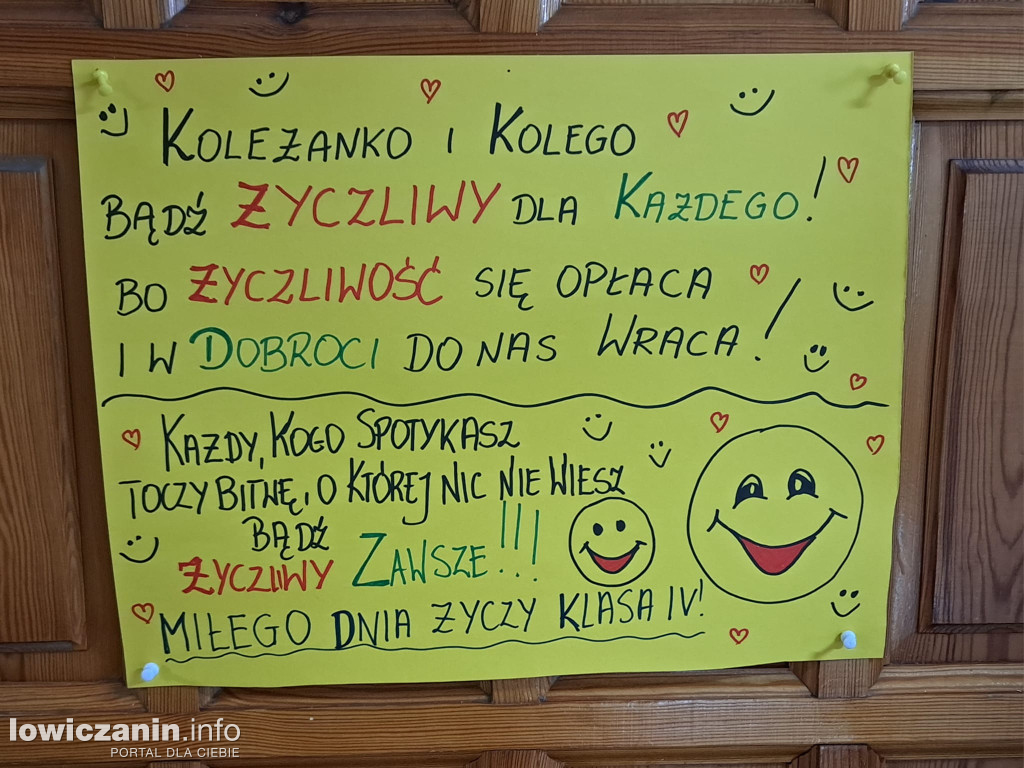 KOLEŻANKO I KOLEGO
BĄDŹ ŻYCZLIWY DLA KAŻDEGO!
BO ŻYCZLIWOŚĆ SIĘ OPŁACA
I W DOBROCI DO NAS WRACA!
KAŻDY, KOGO SPOTYKASZ
TOCZY BITWĘ, O KTÓREJ NIC NIE WIESZ
BĄDŹ
ŻYCZLIWY ZAWSZE!!!
MIŁEGO DNIA ŻYCZY KLASA IV!
lowiczanin.info
PORTAL DLA CIEBIE